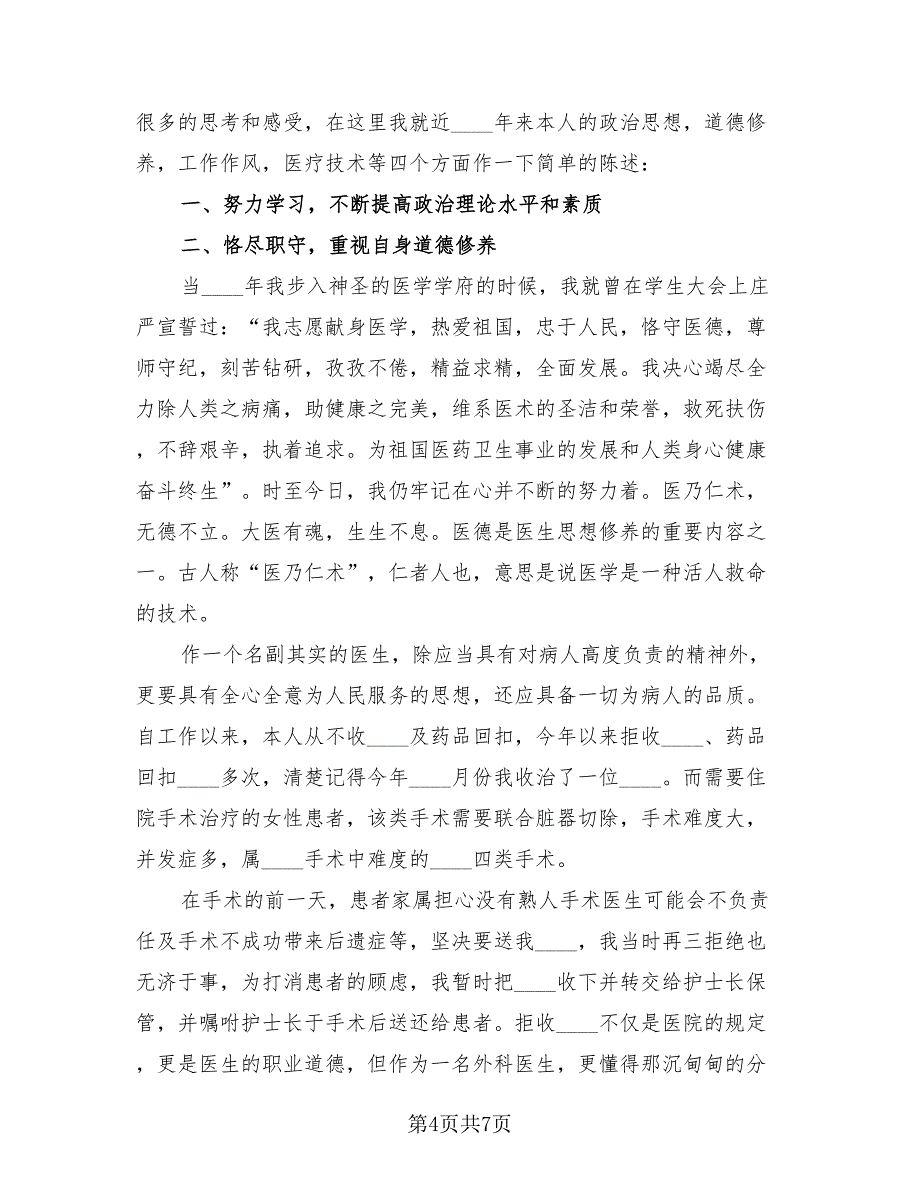 很多的思考和感受，在这里我就近____年来本人的政治思想，道德修
养，工作作风，医疗技术等四个方面作一下简单的陈述：
一、努力学习，不断提高政治理论水平和素质
二、恪尽职守，重视自身道德修养
当____年我步入神圣的医学学府的时候，我就曾在学生大会上庄
严宣誓过：“我志愿献身医学，热爱祖国，忠于人民，恪守医德，尊
师守纪，刻苦钻研，孜孜不倦，精益求精，全面发展。我决心竭尽全
力除人类之病痛，助健康之完美，维系医术的圣洁和荣誉，救死扶伤
，不辞艰辛，执着追求。为祖国医药卫生事业的发展和人类身心健康
奋斗终生”。时至今日，我仍牢记在心并不断的努力着。医乃仁术，
无德不立。大医有魂，生生不息。医德是医生思想修养的重要内容之
一。古人称“医乃仁术”，仁者人也，意思是说医学是一种活人救命
的技术。
作一个名副其实的医生，除应当具有对病人高度负责的精神外，
更要具有全心全意为人民服务的思想，还应具备一切为病人的品质。
自工作以来，本人从不收____及药品回扣，今年以来拒收____、药品
回扣____多次，清楚记得今年____月份我收治了一位____。而需要住
院手术治疗的女性患者，该类手术需要联合脏器切除，手术难度大，
并发症多，属____手术中难度的____四类手术。
在手术的前一天，患者家属担心没有熟人手术医生可能会不负责
任及手术不成功带来后遗症等，坚决要送我____，我当时再三拒绝也
无济于事，为打消患者的顾虑，我暂时把____收下并转交给护士长保
管，并嘱咐护士长于手术后送还给患者。拒收____不仅是医院的规定
，更是医生的职业道德，但作为一名外科医生，更懂得那沉甸甸的分
第4页共7页